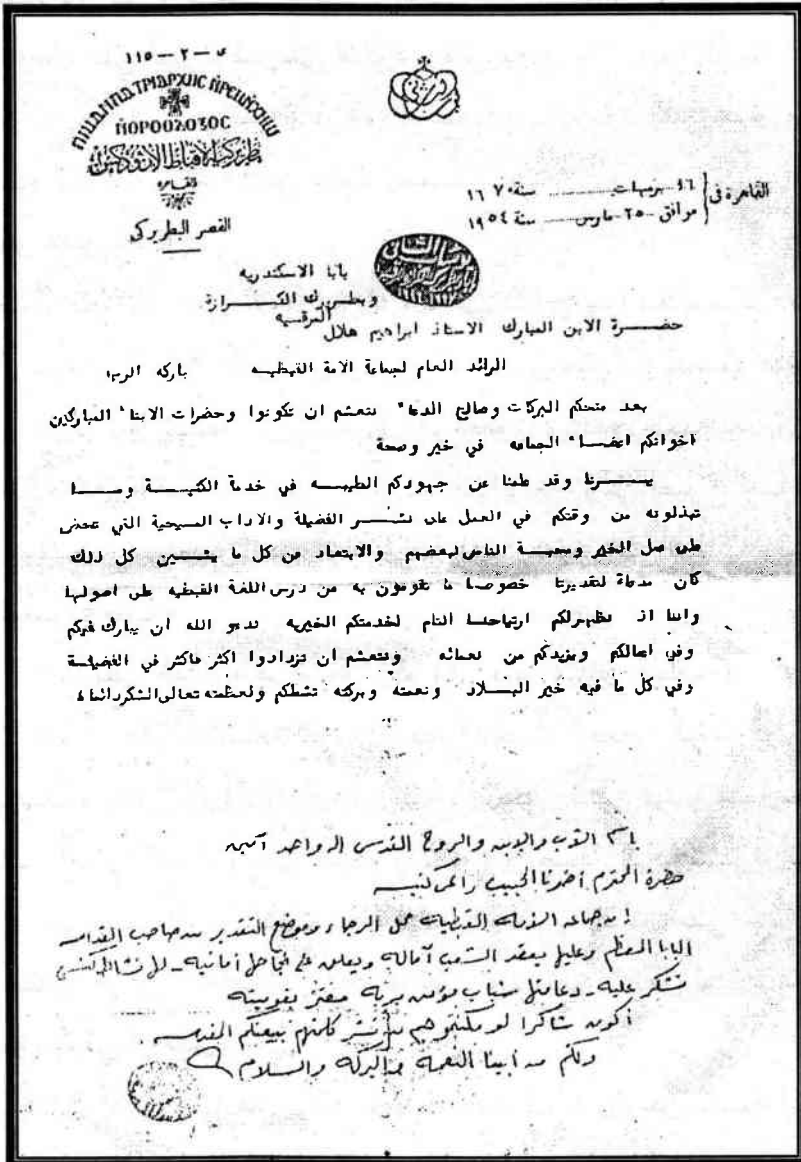 ١١٥ – ٢ – ى
ϯⲡⲁⲧⲣⲓⲁⲣⲭⲏⲥ ⲛ̀ⲣⲉⲙⲛ̀ⲭⲏⲙⲓ
ⲛ̀ⲟⲣⲑⲟⲇⲟⲝⲟⲥ
بطريركية الاقباط الارثوذكس
القاهرة
القصر البطريركى
القاهرة فى ١٦ برمهات سنة ١٦٧٠
موافق ٢٥ مارس سنة ١٩٥٤
بابا الاسكندريه
وبطريرك الكرازة
المرقسيه
حضرة الابن المبارك الاستاذ ابراهيم هلال
الرائد العام لجماعة الامة القبطيه باركه الرب
بعد منحكم البركات وصالح الدعاء نتعشم ان تكونوا وحضرات الابناء المباركين
اخوانكم اعضاء الجماعه في خير وصحة
يسرنا وقد علمنا عن جهودكم الطيبه في خدمة الكنيسة وما
تبذلونه من وقتكم في العمل على نشر الفضيلة والاداب المسيحية التي تحض
على عمل الخير ومحبة الناس لبعضهم والابتعاد عن كل ما يشين كل ذلك
كان مدعاة لتقديرنا خصوصا ما تقومون به من درس اللغة القبطيه على اصولها
واننا اذ نظهر لكم ارتياحنا التام لخدمتكم الخيريه ندعو الله ان يبارك فيكم
وفي اعمالكم ويزيدكم من نعمائه ونتعشم ان تزدادوا اكثر فاكثر في الفضيلة
وفي كل ما فيه خير البلاد ونعمته وبركته تشملكم ولعظمته تعالى الشكر دائما
باسم الآب والابن والروح القدس إله واحد آمين
حضرة المحترم أخونا الحبيب راعى كنيسة
إن جماعة الأمة القبطية محل الرجاء وموضع التقدير من صاحب القداسة
البابا المعظم وعليها يعقد الشعب آماله ويعلق على نجاحها أمانيه - لها نشاط كنسى
تشكر عليه - دعامتها شباب مؤمن بربه معتز بقوميته
أكون شاكرا لو مكنتموهم من نشر كلمتهم ببيعتكم المقدسة.
ولكم من أبينا النعمة والبركة والسلام